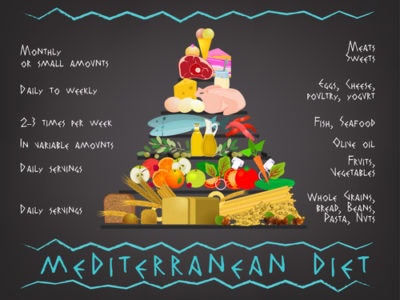 Monthly
or small amounts
Meats
Sweets
Daily to weekly
Eggs, Cheese,
poultry, yogurt
2-3 times per week
Fish, Seafood
In variable amounts
Olive oil
Daily servings
Fruits,
Vegetables
Daily servings
Whole Grains,
bread, Beans,
Pasta, Nuts
MEDITERRANEAN DIET